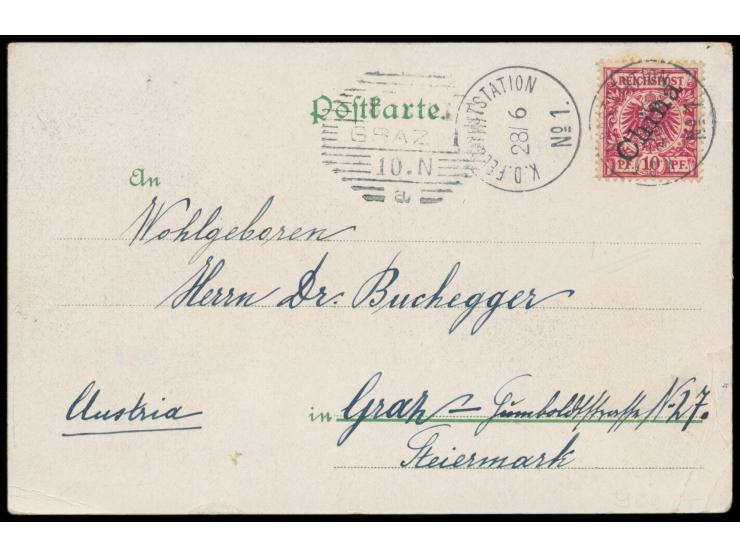 Postkarte.
REICHSPOST
China
PF. 10 PF.
K.D. FELDPOSTSTATION
28/6
No 1.
No 1.
GRAZ
10.N
a
An
Wohlgeboren
Herrn Dr. Buchegger
Austria in Graz – Humboldtstrasse N. 27.
Steiermark